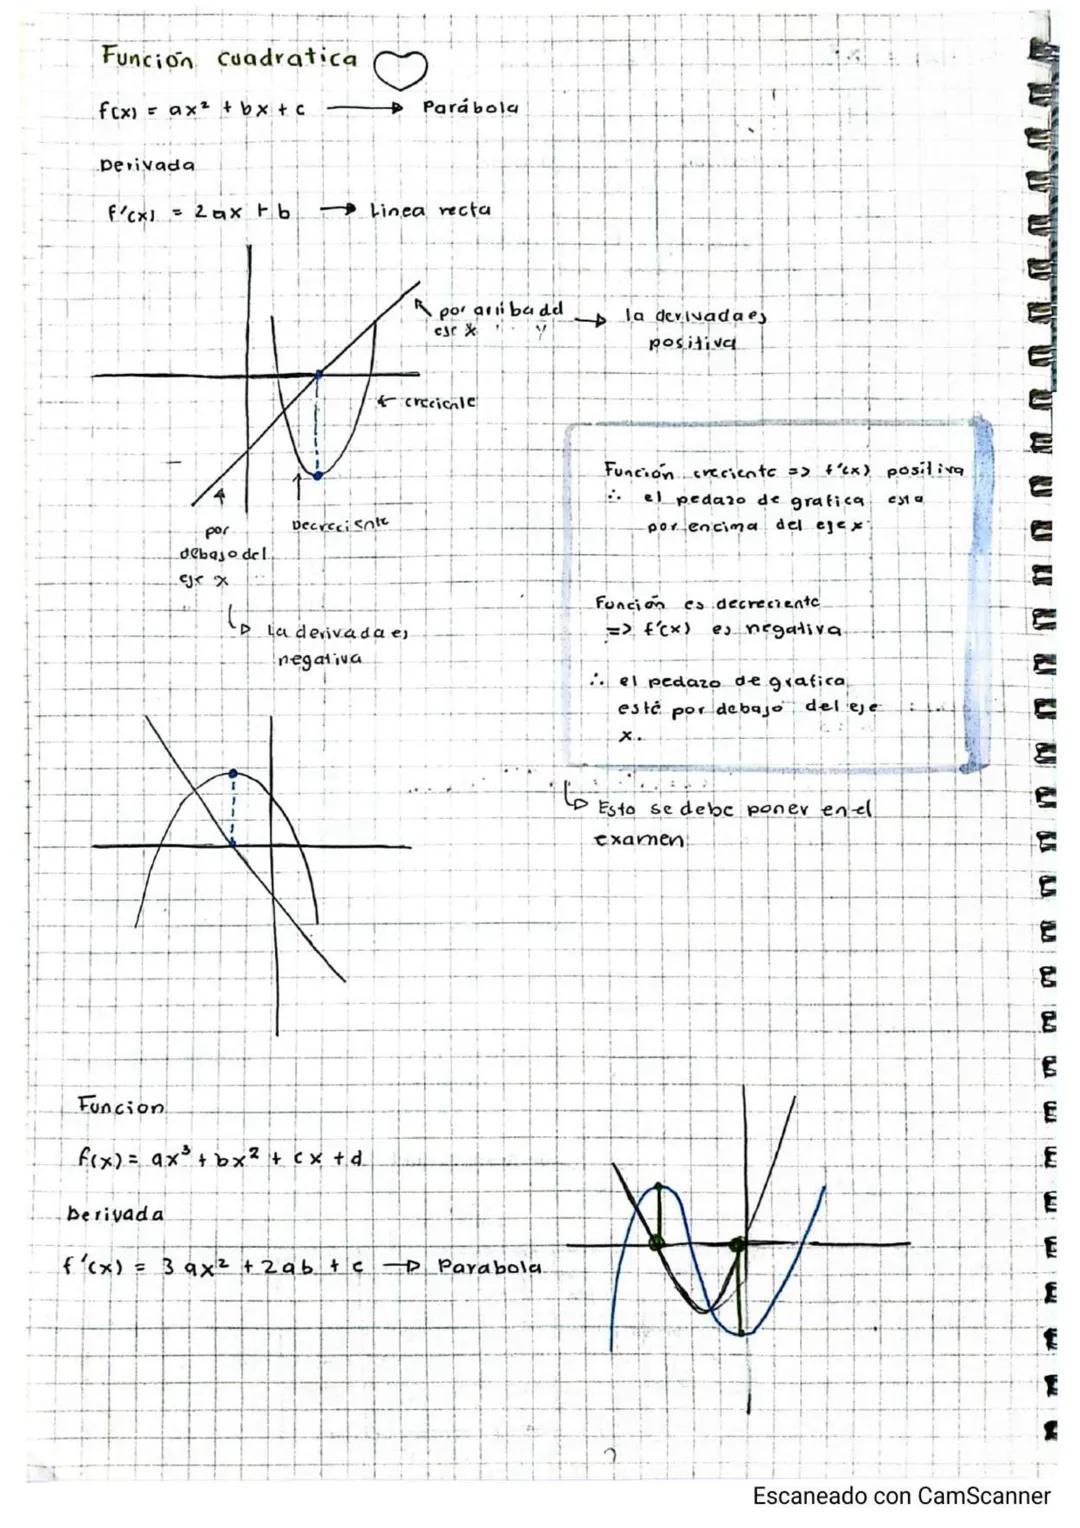 Función cuadratica
f(x) = ax² + bx + c → Parábola
Derivada
f'(x) = 2ax + b → Linea recta
por arriba del → la derivada es
eje x y positiva
← creciente
Función creciente => f'(x) positiva
∴ el pedazo de grafica esta
por encima del eje x
Decreciente
por
debajo del
eje x
Función es decreciente
=> f'(x) es negativa
La derivada es
negativa
∴ el pedazo de grafica
esté por debajo del eje
x.
Esto se debe poner en el
examen
Funcion
f(x) = ax³ + bx² + cx + d
Derivada
f'(x) = 3ax² + 2ab + c → Parabola
?
Escaneado con CamScanner